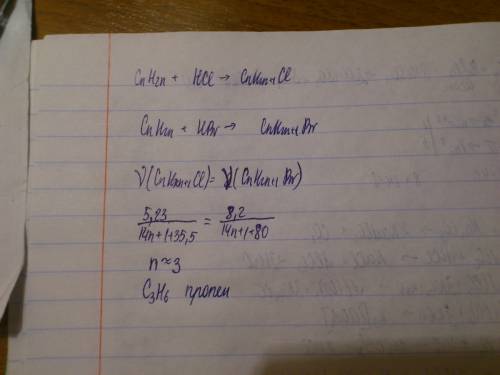 CnH2n + HCl → CnH2n+1Cl
CnH2n + HBr → CnH2n+1Br
ν(CnH2n+1Cl) = ν(CnH2n+1Br)
5,23/14n+1+35,5 = 8,2/14n+1+80
n≈3
C3H6 пропен